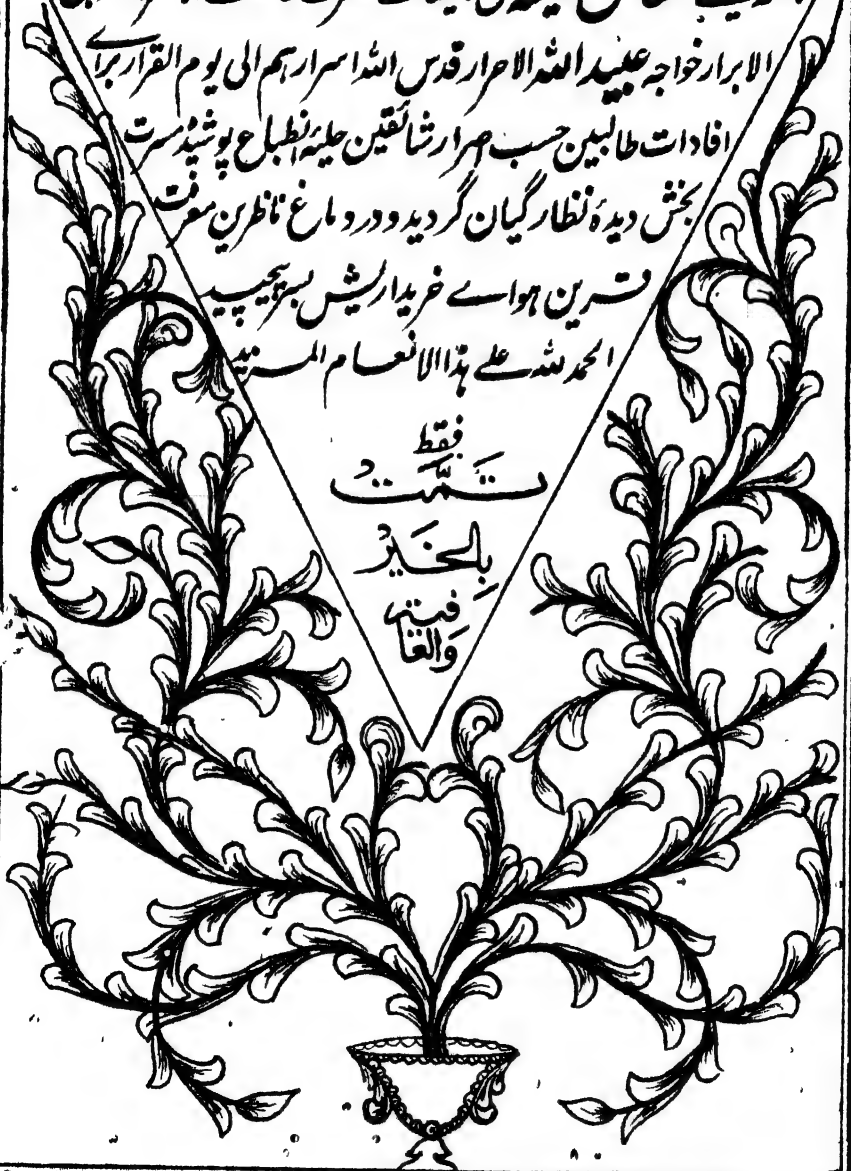 الابرار خواجہ عبید اللہ الاحرار قدس اللہ اسرارہم الی یوم القرار برای
افادات طالبین حسب اصرار شائقین حلیۂ انطباع پوشیدہ مسرت
بخش دیدۂ نظارگیان گردید و در دماغ ناظرین معرفت
قرین ہواے خریداریش بسر پیچید
الحمد للہ علے ہذا الانعام المزید
فقط
تَمَّتْ
بِالْخَیْرِ
وَالْعَافِیَتِہ